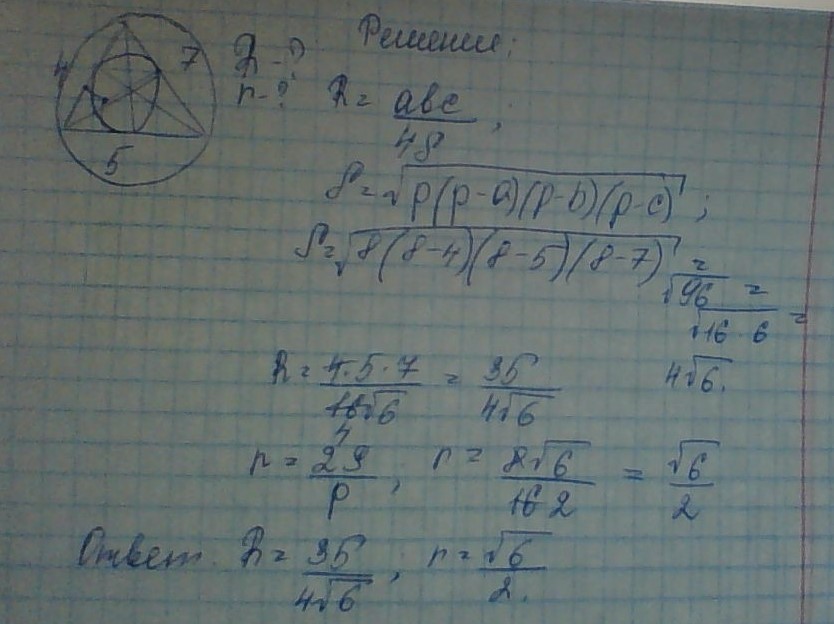 Решение:
4 7 R-?
r-? R = abc / 4S ;
5
S = √p(p-a)(p-b)(p-c) ;
S = √8(8-4)(8-5)(8-7) =
√96 =
√16·6 =
4√6.
R = 4·5·7 / 16√6 = 35 / 4√6
4
r = 2S / p ; r = 8√6 / 16 2 = √6 / 2
Ответ R = 35 / 4√6 ; r = √6 / 2.